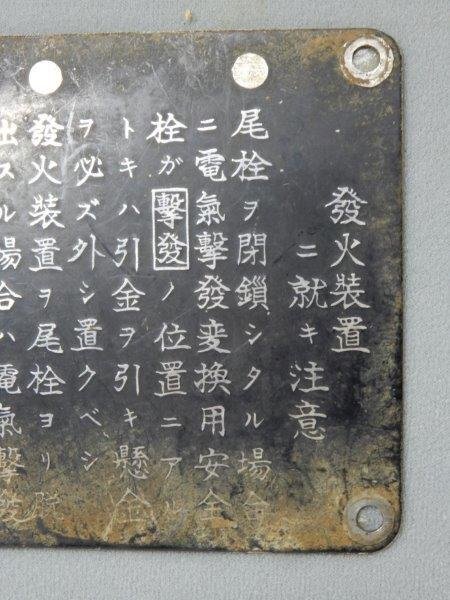 發火装置
ニ就キ注意
尾栓ヲ閉鎖シタル場合
ニ電氣擊發変換用安全
栓が擊發ノ位置ニアル
トキハ引金ヲ引キ懸金
ヲ必ズ外シ置クベシ
發火装置ヲ尾栓ヨリ脱
出スル場合ハ電氣擊發